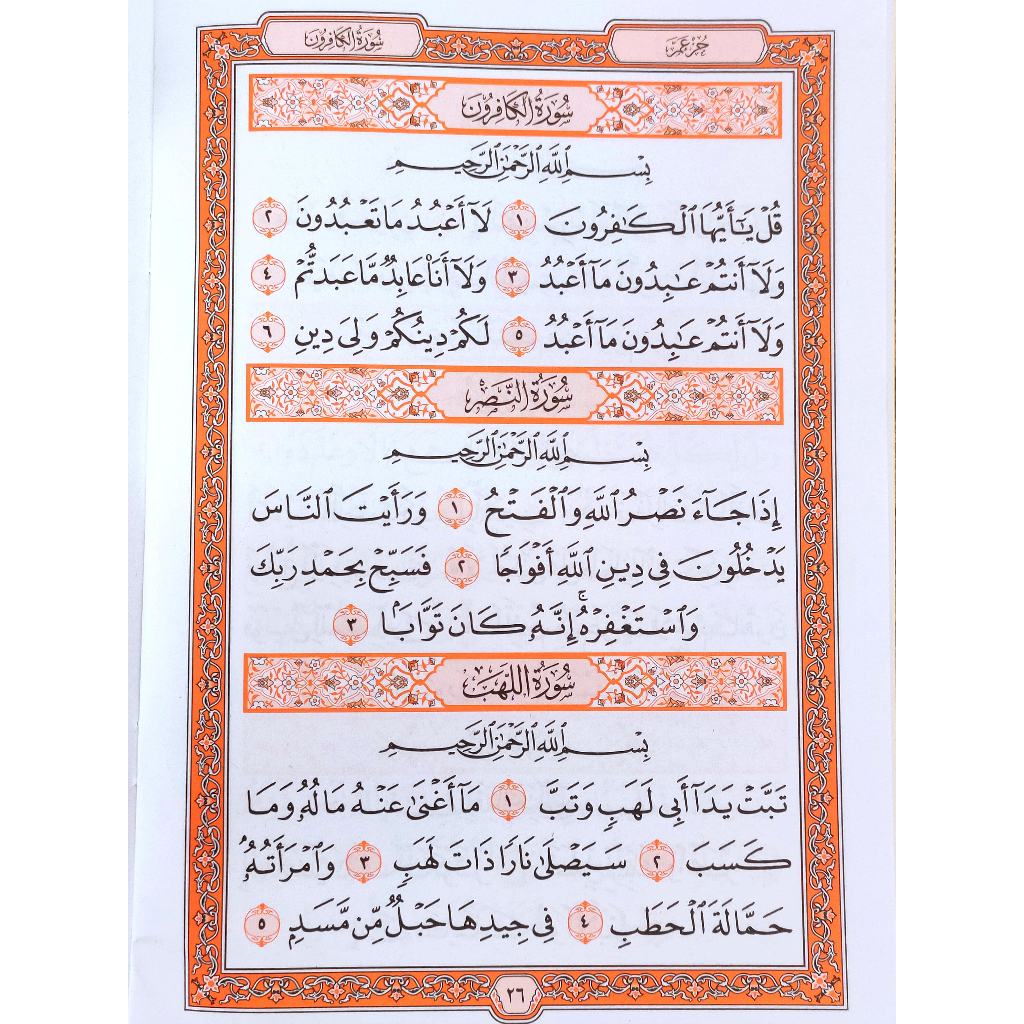 سُورَةُ الكَافِرُون
جُزْءُ عَمَّ
سُورَةُ الكَافِرُون
بِسْمِ ٱللَّهِ ٱلرَّحْمَٰنِ ٱلرَّحِيمِ
قُلْ يَٰٓأَيُّهَا ٱلْكَٰفِرُونَ ١ لَآ أَعْبُدُ مَا تَعْبُدُونَ ٢
وَلَآ أَنتُمْ عَٰبِدُونَ مَآ أَعْبُدُ ٣ وَلَآ أَنَا۠ عَابِدٌ مَّا عَبَدتُّمْ ٤
وَلَآ أَنتُمْ عَٰبِدُونَ مَآ أَعْبُدُ ٥ لَكُمْ دِينُكُمْ وَلِىَ دِينِ ٦
سُورَةُ النَّصْر
بِسْمِ ٱللَّهِ ٱلرَّحْمَٰنِ ٱلرَّحِيمِ
إِذَا جَآءَ نَصْرُ ٱللَّهِ وَٱلْفَتْحُ ١ وَرَأَيْتَ ٱلنَّاسَ
يَدْخُلُونَ فِى دِينِ ٱللَّهِ أَفْوَاجًا ٢ فَسَبِّحْ بِحَمْدِ رَبِّكَ
وَٱسْتَغْفِرْهُ ۚ إِنَّهُۥ كَانَ تَوَّابًۢا ٣
سُورَةُ اللَّهَب
بِسْمِ ٱللَّهِ ٱلرَّحْمَٰنِ ٱلرَّحِيمِ
تَبَّتْ يَدَآ أَبِى لَهَبٍ وَتَبَّ ١ مَآ أَغْنَىٰ عَنْهُ مَالُهُۥ وَمَا
كَسَبَ ٢ سَيَصْلَىٰ نَارًا ذَاتَ لَهَبٍ ٣ وَٱمْرَأَتُهُۥ
حَمَّالَةَ ٱلْحَطَبِ ٤ فِى جِيدِهَا حَبْلٌ مِّن مَّسَدٍۭ ٥
٢٦